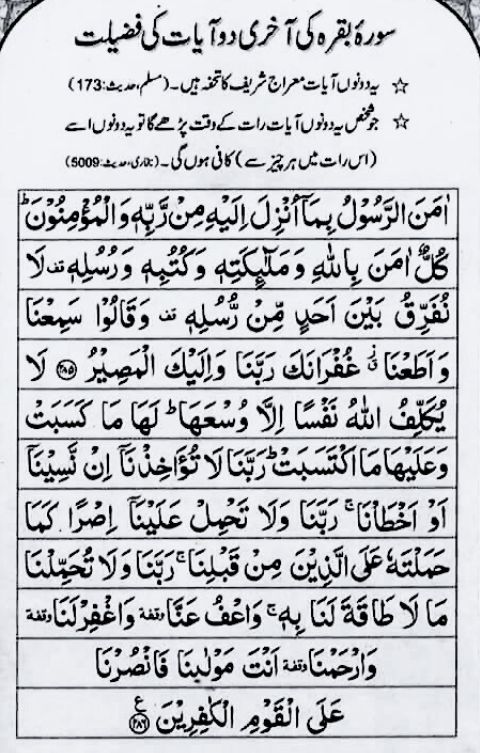 سورۂ بقرہ کی آخری دو آیات کی فضیلت
☆ یہ دونوں آیات معراج شریف کا تحفہ ہیں۔ (مسلم، حدیث: 173)
☆ جو شخص یہ دونوں آیات رات کے وقت پڑھے گا تو یہ دونوں اسے
(اس رات میں ہر چیز سے) کافی ہوں گی۔ (بخاری، حدیث: 5009)
اٰمَنَ الرَّسُوْلُ بِمَاۤ اُنْزِلَ اِلَيْهِ مِنْ رَّبِّهٖ وَالْمُؤْمِنُوْنَ ؕ
كُلٌّ اٰمَنَ بِاللّٰهِ وَمَلٰٓىِٕكَتِهٖ وَكُتُبِهٖ وَرُسُلِهٖ قف لَا
نُفَرِّقُ بَيْنَ اَحَدٍ مِّنْ رُّسُلِهٖ قف وَقَالُوْا سَمِعْنَا
وَاَطَعْنَا ق ز غُفْرَانَكَ رَبَّنَا وَاِلَيْكَ الْمَصِيْرُ ﴿۲۸۵﴾ لَا
يُكَلِّفُ اللّٰهُ نَفْسًا اِلَّا وُسْعَهَا ؕ لَهَا مَا كَسَبَتْ
وَعَلَيْهَا مَا اكْتَسَبَتْ ؕ رَبَّنَا لَا تُؤَاخِذْنَاۤ اِنْ نَّسِيْنَاۤ
اَوْ اَخْطَاْنَا ۚ رَبَّنَا وَلَا تَحْمِلْ عَلَيْنَاۤ اِصْرًا كَمَا
حَمَلْتَهٗ عَلَى الَّذِيْنَ مِنْ قَبْلِنَا ۚ رَبَّنَا وَلَا تُحَمِّلْنَا
مَا لَا طَاقَةَ لَنَا بِهٖ ۚ وَاعْفُ عَنَّا وقفة وَاغْفِرْ لَنَا وقفة
وَارْحَمْنَا وقفة اَنْتَ مَوْلٰىنَا فَانْصُرْنَا
عَلَى الْقَوْمِ الْكٰفِرِيْنَ ع ﴿۲۸۶﴾